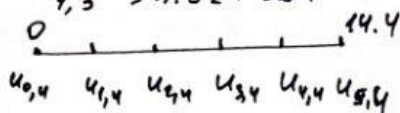 0 14.4
u₀,₄ u₁,₄ u₂,₄ u₃,₄ u₄,₄ u₅,₄